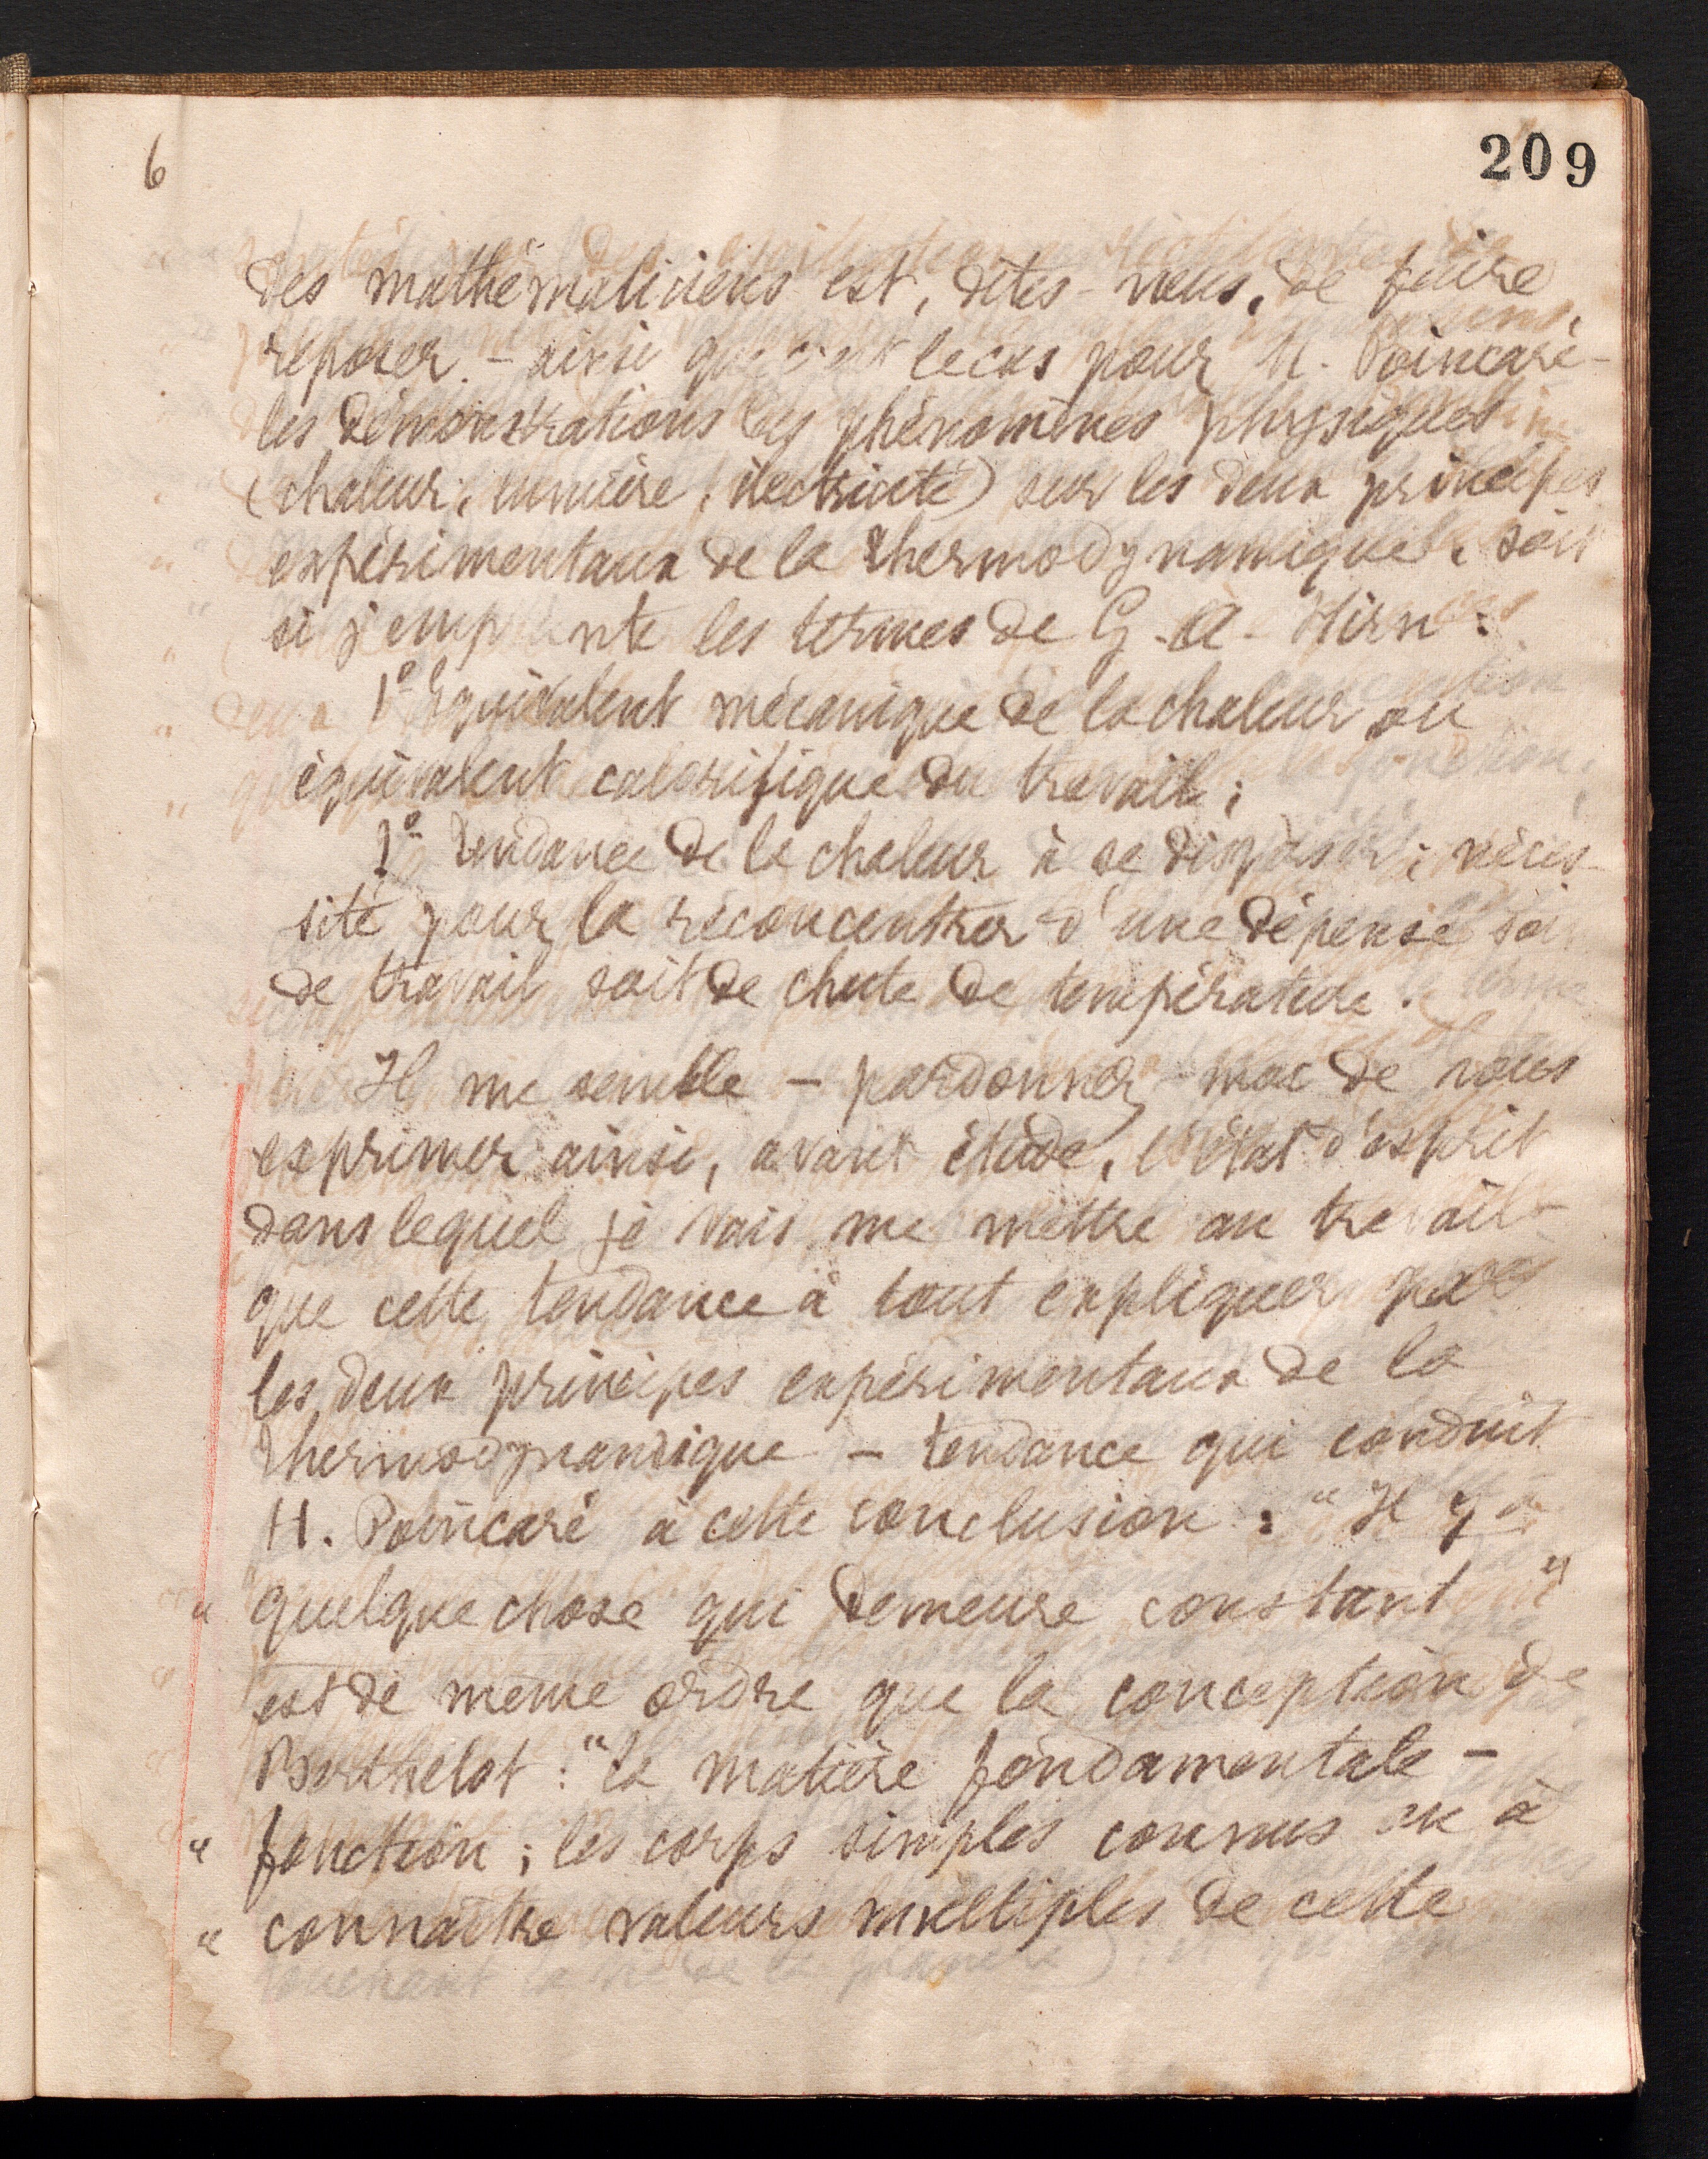 6
209
des mathématiciens est, dites-vous, de faire
reposer - ainsi que c'est le cas pour H. Poincaré -
les démonstrations des phénomènes physiques
(chaleur, lumière, électricité) sur les deux principes
expérimentaux de la thermodynamique, soit
si j'emprunte les termes de G-A- Hirn :
1° Equivalent mécanique de la chaleur ou
équivalent calorifique du travail ;
2° Tendance de la chaleur à se disperser ; néces-
sité pour la reconcentrer d'une dépense soit
de travail soit de chute de température.
Il me semble - pardonnez-moi de vous
exprimer ainsi, avant étude, l'état d'esprit
dans lequel je vais me mettre au travail -
que cette tendance à tout expliquer par
les deux principes expérimentaux de la
thermodynamique - tendance qui conduit
H. Poincaré à cette conclusion : " Il y a
" quelque chose qui demeure constant "
est de même ordre que la conception de
Berthelot : " La matière fondamentale -
" fonction ; les corps simples connus ou à
" connaître valeurs multiples de cette